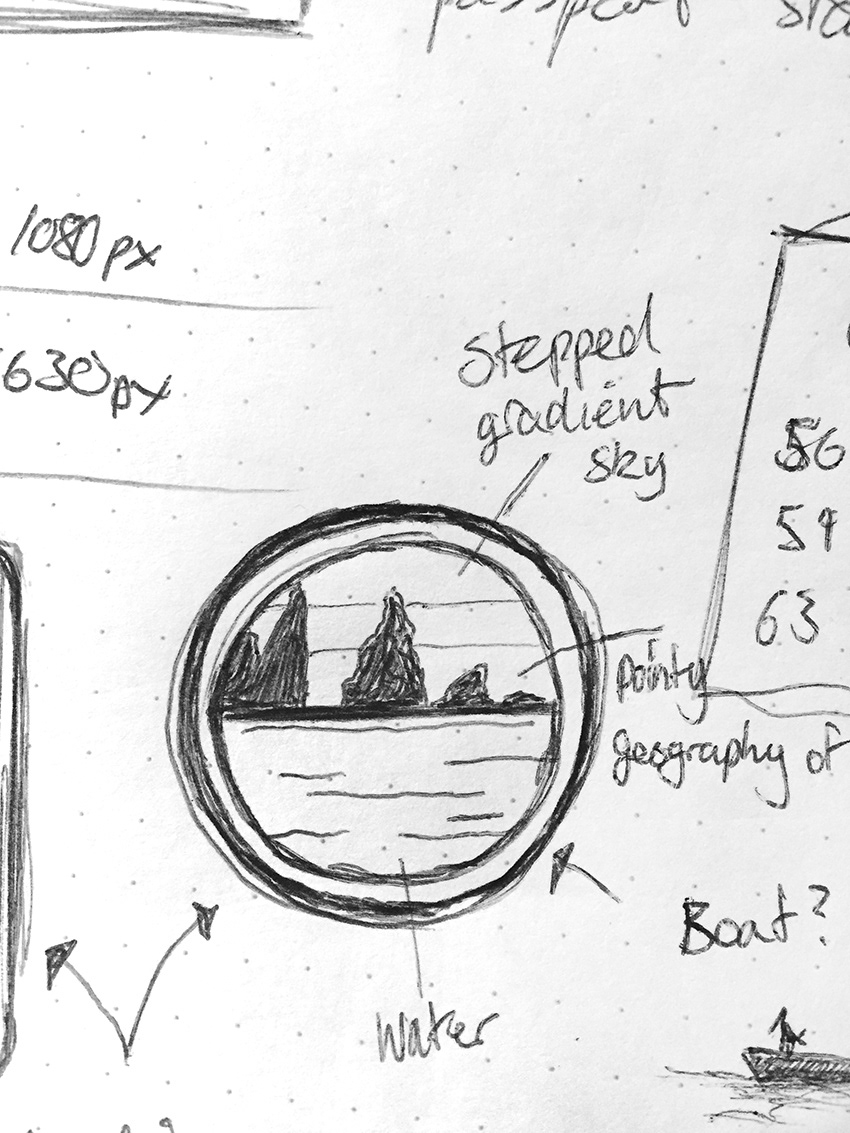 1080px
630px
Stepped
gradient
sky
56
54
63
pointy
geography of
Boat?
Water